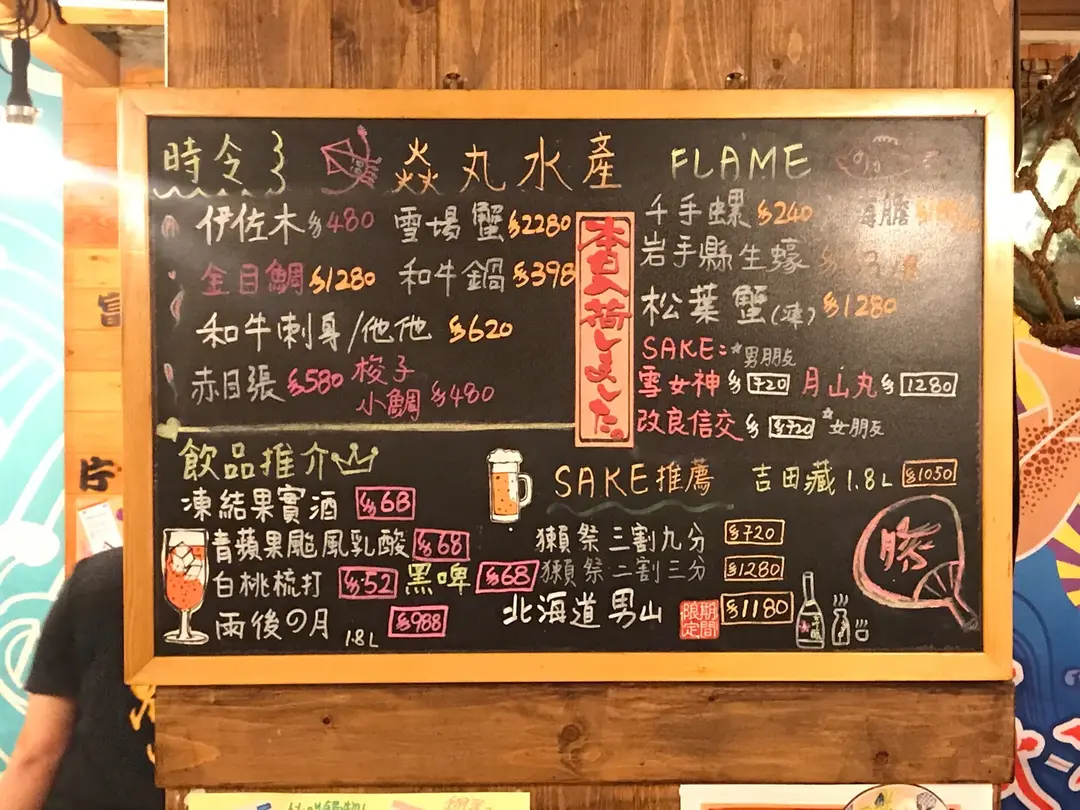 時令
焱丸水產 FLAME
伊佐木 $480
雪場蟹 $2280
金目鯛 $1280
和牛鍋 $398
和牛刺身/他他 $620
赤目張 $580
梭子小鯛 $480
本日入荷しました。
千手螺 $240
岩手縣生蠔
松葉蟹(凍) $1280
SAKE: *男朋友
雪女神 $720 月山丸 $1280
改良信交 $720 *女朋友
飲品推介
凍結果實酒 $68
青蘋果颱風乳酸 $68
白桃梳打 $52 黑啤 $68
雨後の月 1.8L $988
SAKE推薦
吉田藏 1.8L $1050
獺祭三割九分 $720
獺祭二割三分 $1280
北海道男山 期間限定 $1180
勝